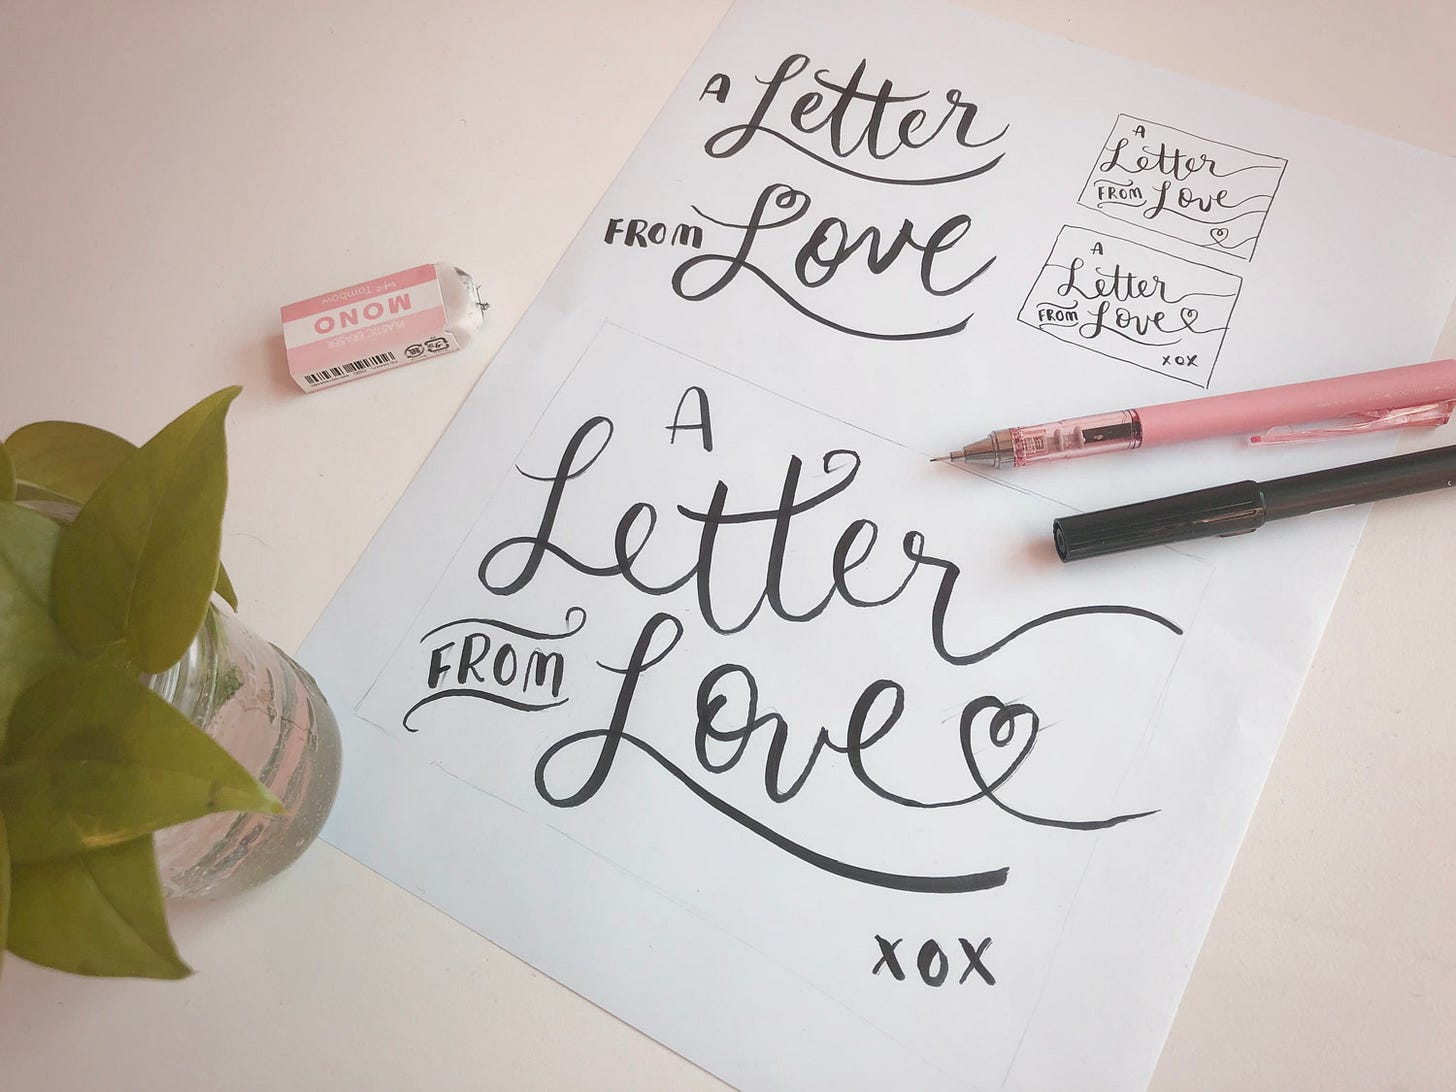 A Letter
FROM Love
A
Letter
FROM Love
A
Letter
FROM Love
xox
A
Letter
FROM Love
XOX
MONO
Tombow
PLASTIC ERASER